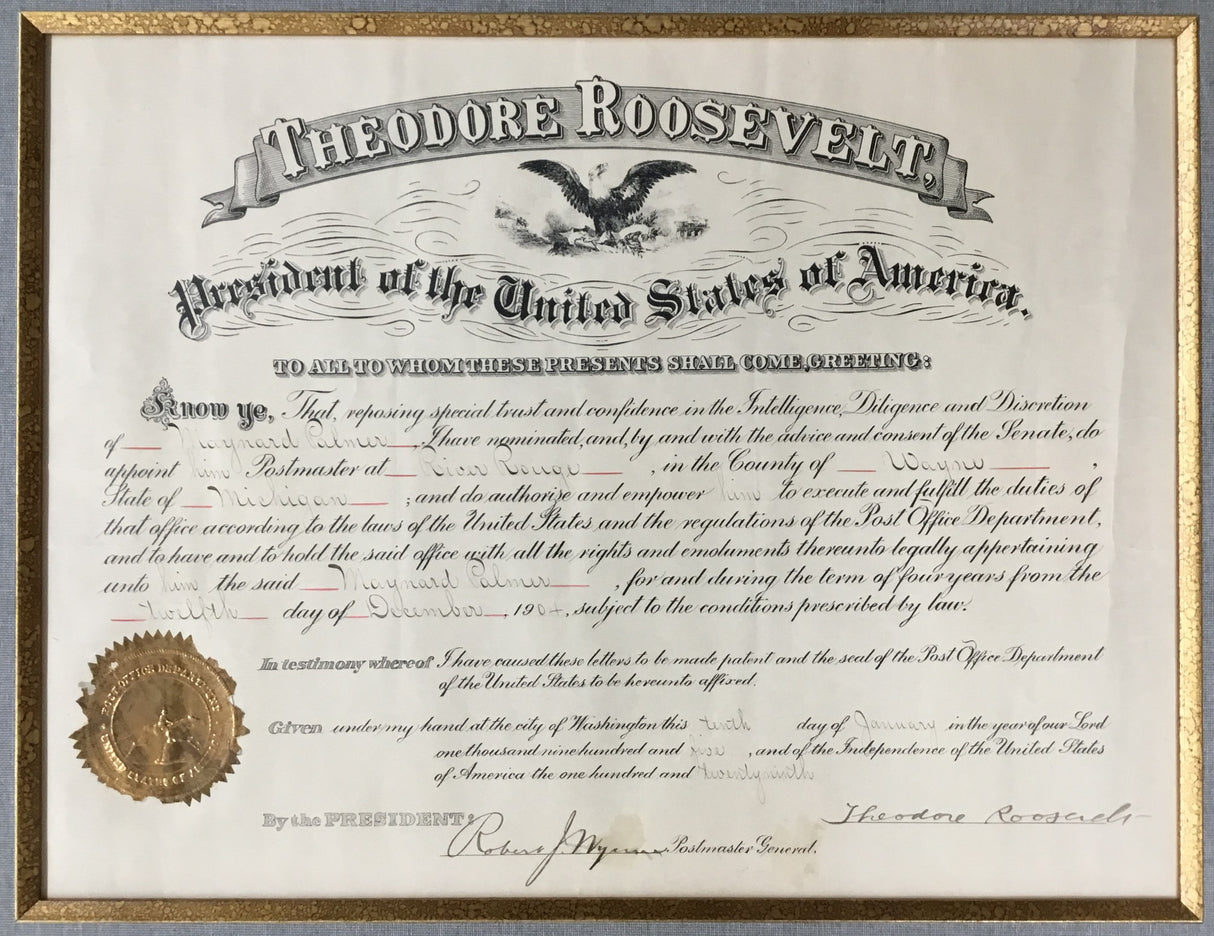 THEODORE ROOSEVELT,
President of the United States of America.
TO ALL TO WHOM THESE PRESENTS SHALL COME, GREETING:
Know ye, That, reposing special trust and confidence in the Intelligence, Diligence and Discretion
of Maynard Palmer, I have nominated, and, by and with the advice and consent of the Senate, do
appoint him Postmaster at River Rouge, in the County of Wayne,
State of Michigan; and do authorize and empower him to execute and fulfill the duties of
that office according to the laws of the United States and the regulations of the Post Office Department,
and to have and to hold the said office with all the rights and emoluments thereunto legally appertaining
unto him the said Maynard Palmer, for and during the term of four years from the
twelfth day of December, 1904, subject to the conditions prescribed by law.
In testimony whereof I have caused these letters to be made patent and the seal of the Post Office Department
of the United States to be hereunto affixed.
Given under my hand at the city of Washington this tenth day of January in the year of our Lord
one thousand nine hundred and five, and of the Independence of the United States
of America the one hundred and twenty ninth
By the PRESIDENT:
Theodore Roosevelt
Robert J. Wynne Postmaster General.
POST OFFICE DEPARTMENT
UNITED STATES OF AMERICA